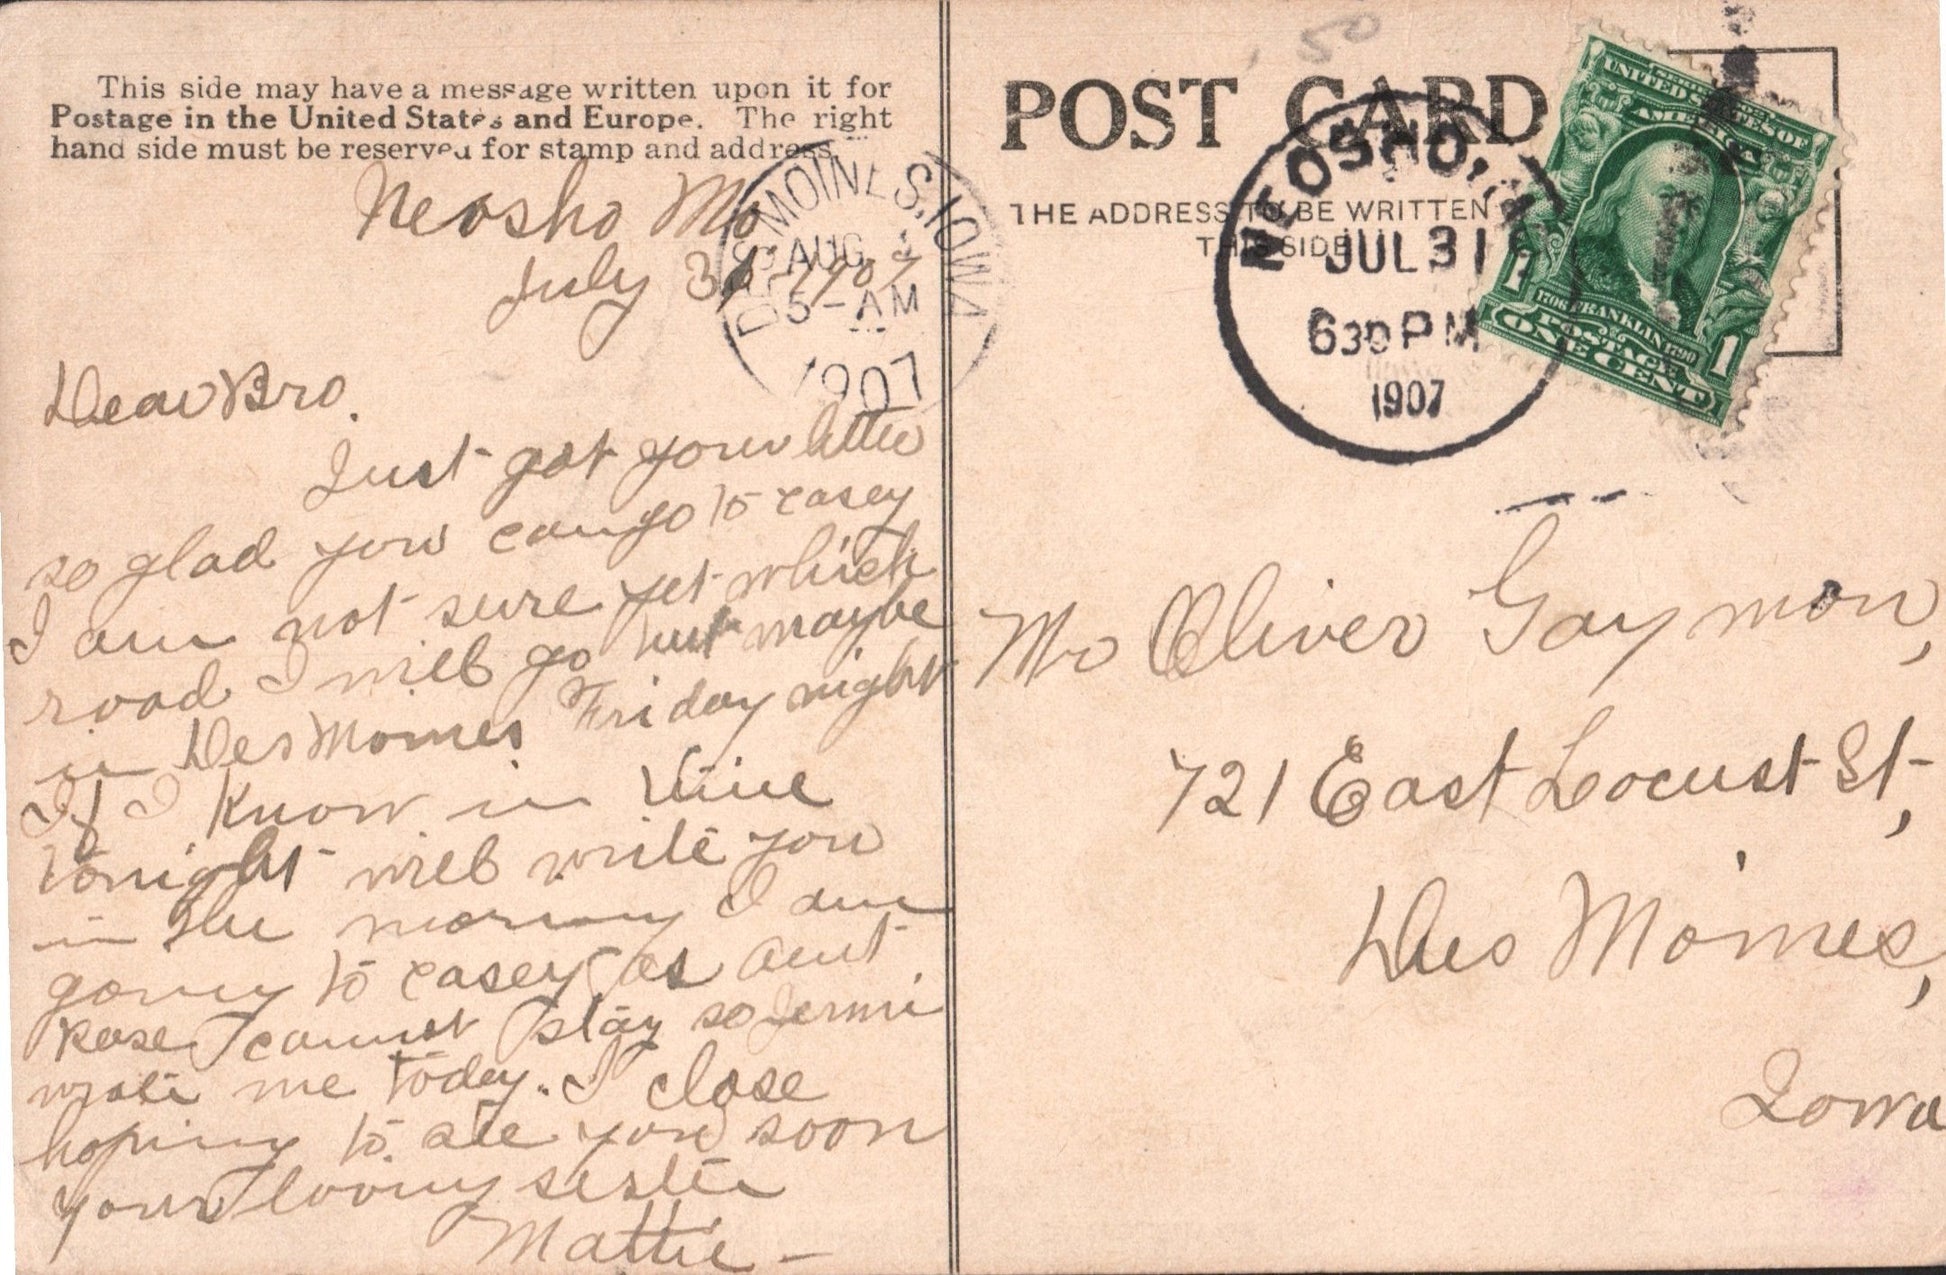 This side may have a message written upon it for
Postage in the United States and Europe. The right
hand side must be reserved for stamp and address.
Neosho Mo
July 31-1907
Dear Bro.
Just got your letter
so glad you can go to Casey
I am not sure yet which
road I will go but maybe
in Des Moines Friday night
If I know in time
tonight will write you
in the morning I am
going to Casey as aunt
Rose cannot stay so Jennie
wrote me today. I close
hoping to see you soon
your loving sister
Mattie -
DES MOINES, IOWA
AUG
5-AM
1907
POST CARD
THE ADDRESS TO BE WRITTEN
THIS SIDE
NEOSHO,
JUL 31
630 PM
1907
UNITED STATES OF
AMERICA
1706 FRANKLIN 1790
1 POSTAGE 1
ONE CENT
Mr Oliver Gaymon,
721 East Locust St,
Des Moines,
Iowa